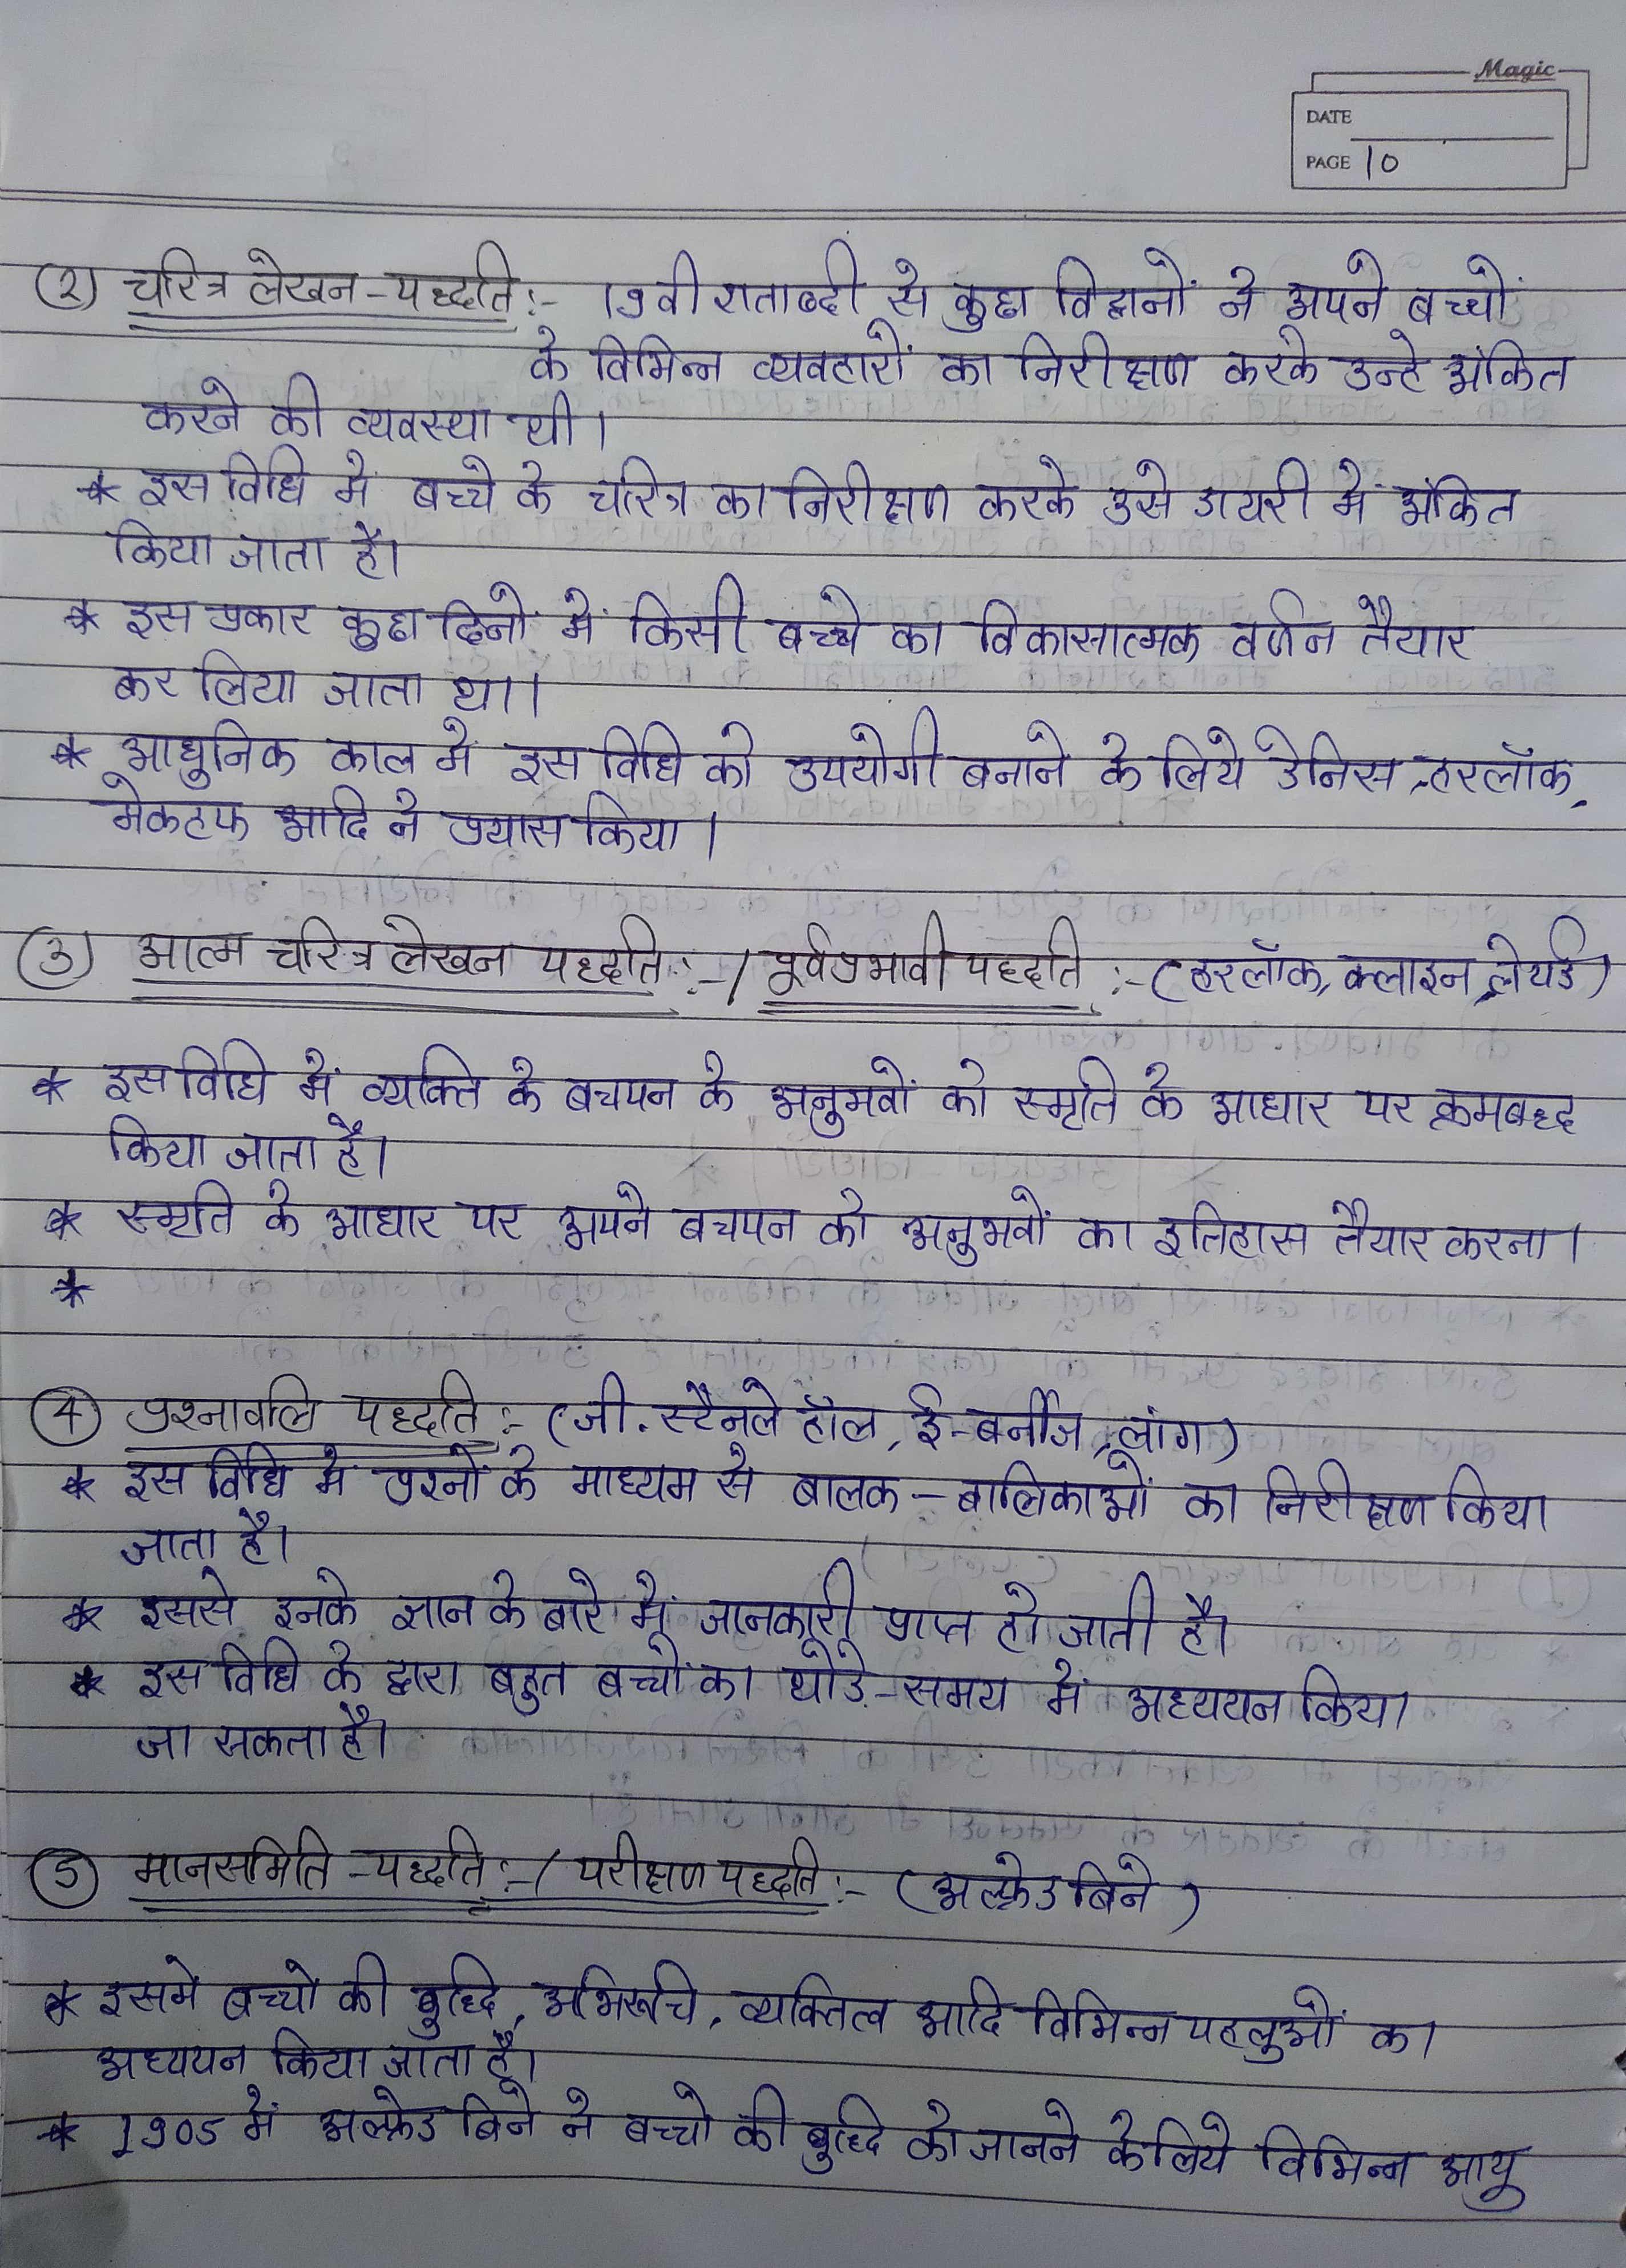 Magic
DATE
PAGE 10
(2) चरित्र लेखन-पद्धति :- 19वी शताब्दी से कुछ विद्वानों ने अपने बच्चों
के विभिन्न व्यवहारों का निरीक्षण करके उन्हे अंकित
करने की व्यवस्था थी।
* इस विधि में बच्चे के चरित्र का निरीक्षण करके उसे डायरी में अंकित
किया जाता है।
* इस प्रकार कुछ दिनों में किसी बच्चे का विकासात्मक वर्णन तैयार
कर लिया जाता था।
* आधुनिक काल में इस विधि को उपयोगी बनाने के लिये डेनिस, हरलॉक,
मेकहफ आदि ने प्रयास किया।
(3) आत्म चरित्र लेखन पद्धति :-/ पूर्वप्रभावी पद्धति :- (हरलॉक, क्लाइन, लेयर्ड)
* इस विधि में व्यक्ति के बचपन के अनुभवों को स्मृति के आधार पर क्रमबद्ध
किया जाता है।
* स्मृति के आधार पर अपने बचपन को अनुभवों का इतिहास तैयार करना।
*
(4) प्रश्नावलि पद्धति :- (जी. स्टैनले हॉल, ई-बर्नीज, लांग)
* इस विधि में प्रश्नों के माध्यम से बालक - बालिकाओं का निरीक्षण किया
जाता है।
* इससे इनके ज्ञान के बारे में जानकारी प्राप्त हो जाती है।
* इस विधि के द्वारा बहुत बच्चों का थोडे-समय में अध्ययन किया
जा सकता है।
(5) मानसमिति-पद्धति :-/ परीक्षण पद्धति :- (अल्फ्रेड बिने)
* इसमे बच्चो की बुद्धि, अभिरूचि, व्यक्तित्व आदि विभिन्न पहलुओं का
अध्ययन किया जाता है।
* 1905 में अल्फ्रेड बिने ने बच्चो की बुद्धि को जानने के लिये विभिन्न आयु